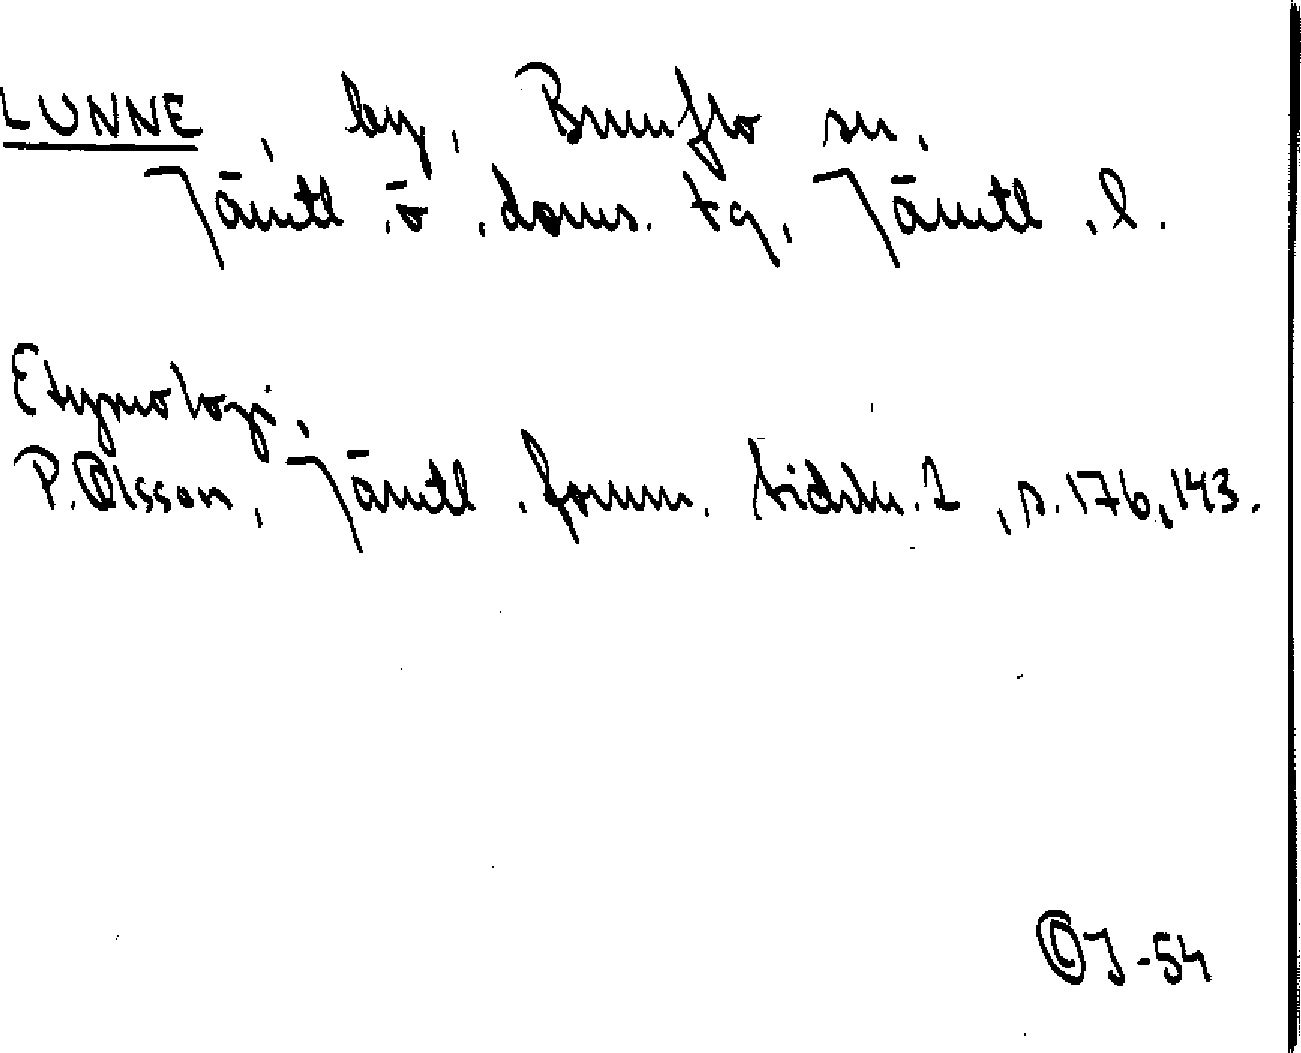 LUNNE, by, Brunflo sn,
Jämtl. ö. doms. tg, Jämtl. l.
Etymologi,
P. Olsson, Jämtl. fornm. tidskr. 1, s. 176, 143.
OJ-54